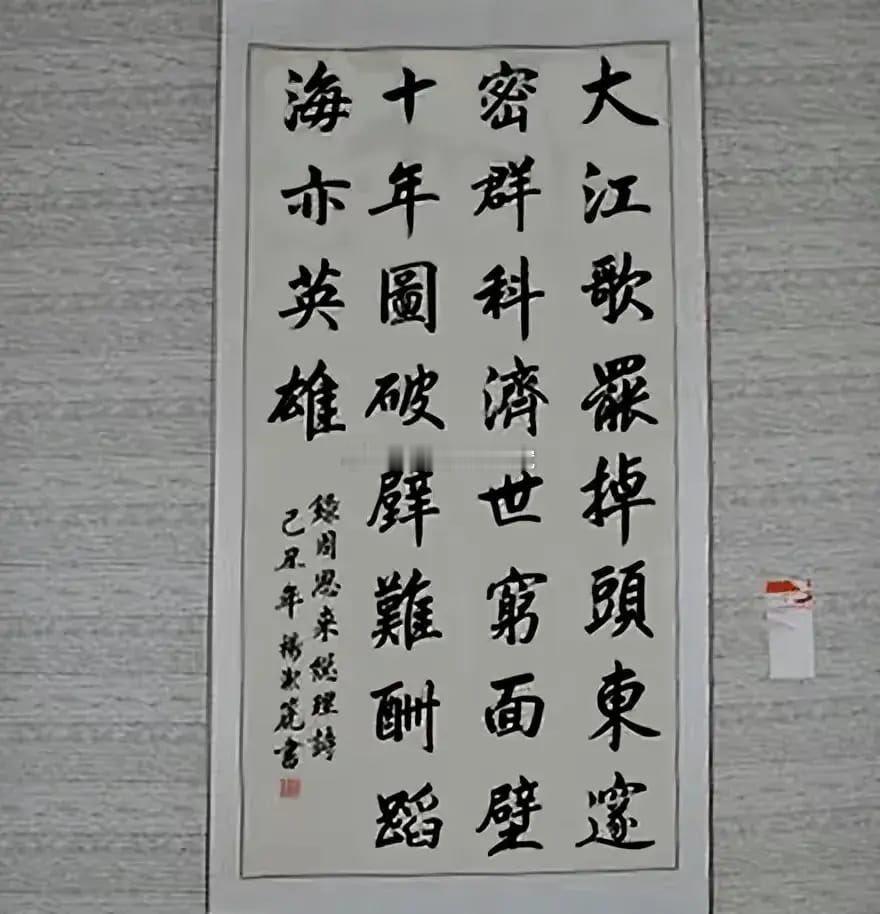 大江歌罷掉頭東邃
密群科濟世窮面壁
十年圖破壁難酬蹈
海亦英雄
錄周恩来總理詩
己丑年楊書